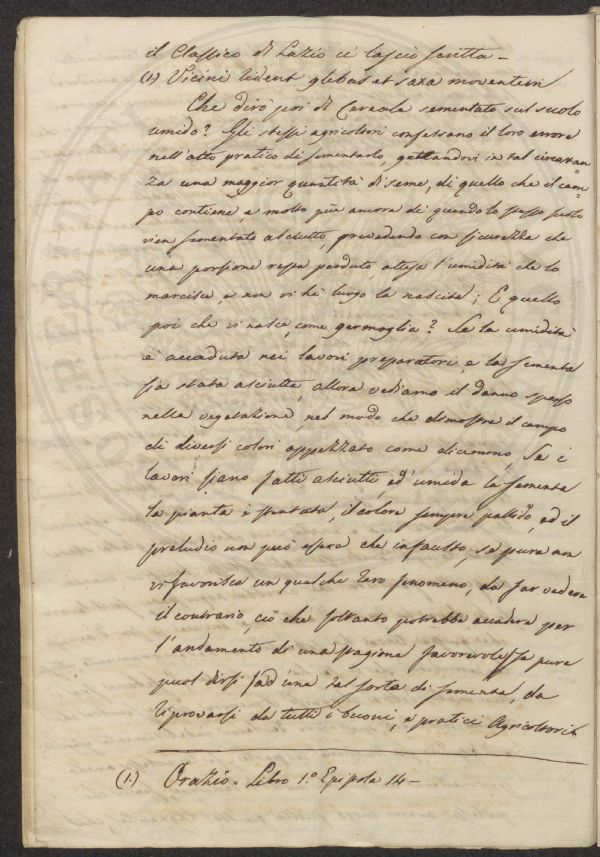 il Classico di Lazio ci lasciò scritta -
(1) Vicini rident glebas et saxa moventem
Che dirò poi di Cereale sementato sul suolo
umido? Gli stessi agricoltori confessano il loro errore
nell'atto pratico di sementarlo, gettandovi in tal circostan=
za una maggior quantità di seme, di quello che il cam=
po contiene e molto più ancora di quando lo stesso suolo
vien sementato asciutto, prevedendo con sicurezza che
una porzione resta perduta attesa l'umidità che la
marcisce, e non vi hè luogo la nascita; E quello
poi che vi nasce, come germoglia? Se la umidità
è accaduta nei lavori preparatori e la sementa
sia stata asciutta, allora vediamo il danno spesso
nella vegetazione, nel modo che dimostra il campo
di diversi colori appezzato come dicemmo, Se i
lavori siano fatti asciutti, ed umida la sementa
la pianta è stentata, il colore sempre pallido, ed il
preludio non può essere che infausto, se pure non
vi favorisca un qualche raro fenomeno, da far vedere
il contrario, ciò che soltanto potrebbe accadere per
l'andamento di una stagione favorevole, se pure
puol dirsi ad una tal sorta di sementa, da
riprovarsi da tutti i buoni, e pratici Agricoltori.
(1.) Orazio. Libro 1.º Epistola 14 -